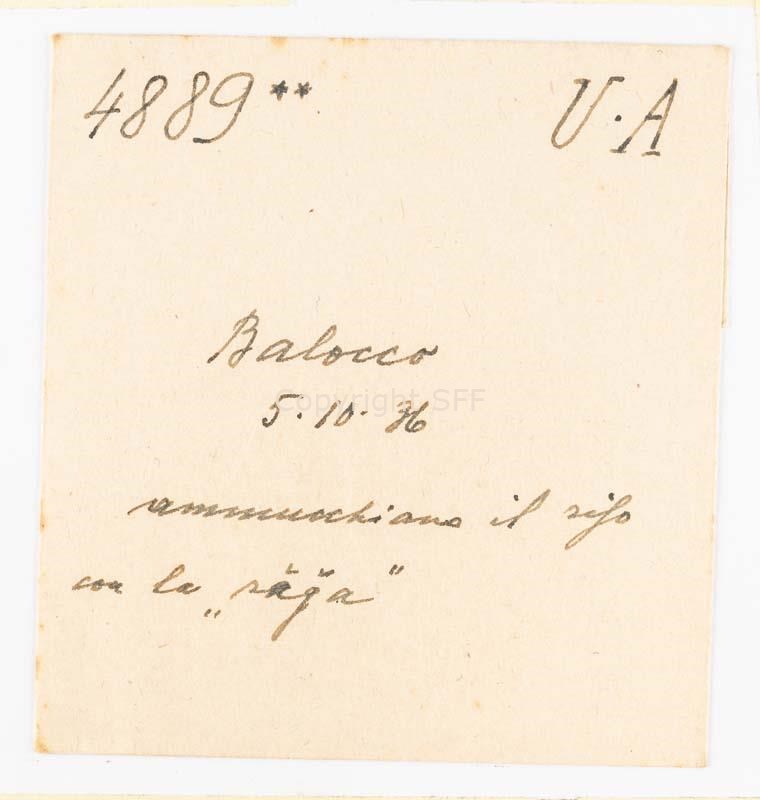 4889** U·A
Balocco
Copyright SFF
5·10·36
ammucchiano il riso
con la „räǧa"